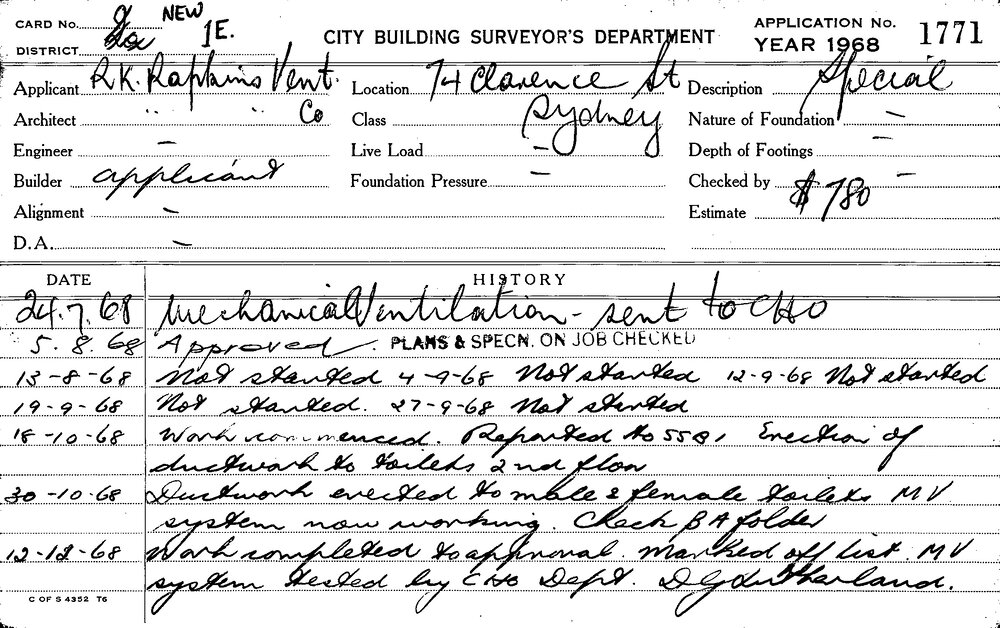 CARD No. 2 NEW
DISTRICT 1E.
CITY BUILDING SURVEYOR'S DEPARTMENT
APPLICATION No. 1771
YEAR 1968
Applicant R.K. Raptains Vent. Location 74 Clarence St Description Special
Architect " " Co Class Sydney Nature of Foundation —
Engineer — Live Load — Depth of Footings —
Builder applicant Foundation Pressure — Checked by —
Alignment — Estimate $780
D.A. —
DATE HISTORY
24.7.68 Mechanical Ventilation - sent to CHO
5.8.68 Approved. PLANS & SPECN. ON JOB CHECKED
13-8-68 Not started 4-9-68 Not started 12-9-68 Not started
19-9-68 Not started. 27-9-68 Not started
18-10-68 Work commenced. Reported to Erection of
ductwork to toilets 2nd floor
30-10-68 Ductwork erected to male & female toilets MV
system now working. Check BA folder
12-12-68 Work completed to approval. Marked off list. MV
system tested by CHO Dept. D G Sutherland.
C OF S 4352 T6